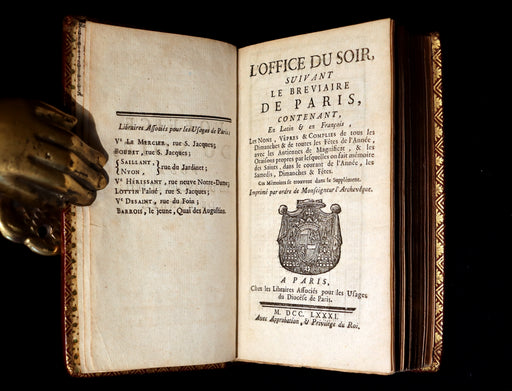 Libraires Associés pour les Usages de Paris;
Vᵉ LE MERCIER, rue S. Jacques;
BOUDET, rue S. Jacques;
SAILLANT,
NYON, rue du Jardinet;
Vᵉ HÉRISSANT, rue neuve Notre-Dame;
LOTTIN l'aîné, rue S. Jacques;
Vᵉ DESAINT, rue du Foin;
BARBOIS, le jeune, Quai des Augustins.
L'OFFICE DU SOIR,
SUIVANT
LE BREVIAIRE
DE PARIS,
CONTENANT,
En Latin & en François,
LES NONES, VÊPRES & COMPLIES de tous les
Dimanches & de toutes les Fêtes de l'Année,
avec les Antiennes de Magnificat, & les
Oraisons propres par lesquelles on fait mémoire
des Saints, dans le courant de l'Année, les
Samedis, Dimanches & Fêtes.
Ces Mémoires se trouvent dans le Supplément.
Imprimé par ordre de Monseigneur l'Archevêque.
A PARIS,
Chez les Libraires Associés pour les Usages
du Diocèse de Paris.
M. DCC. LXXXI.
Avec Approbation, & Privilége du Roi.